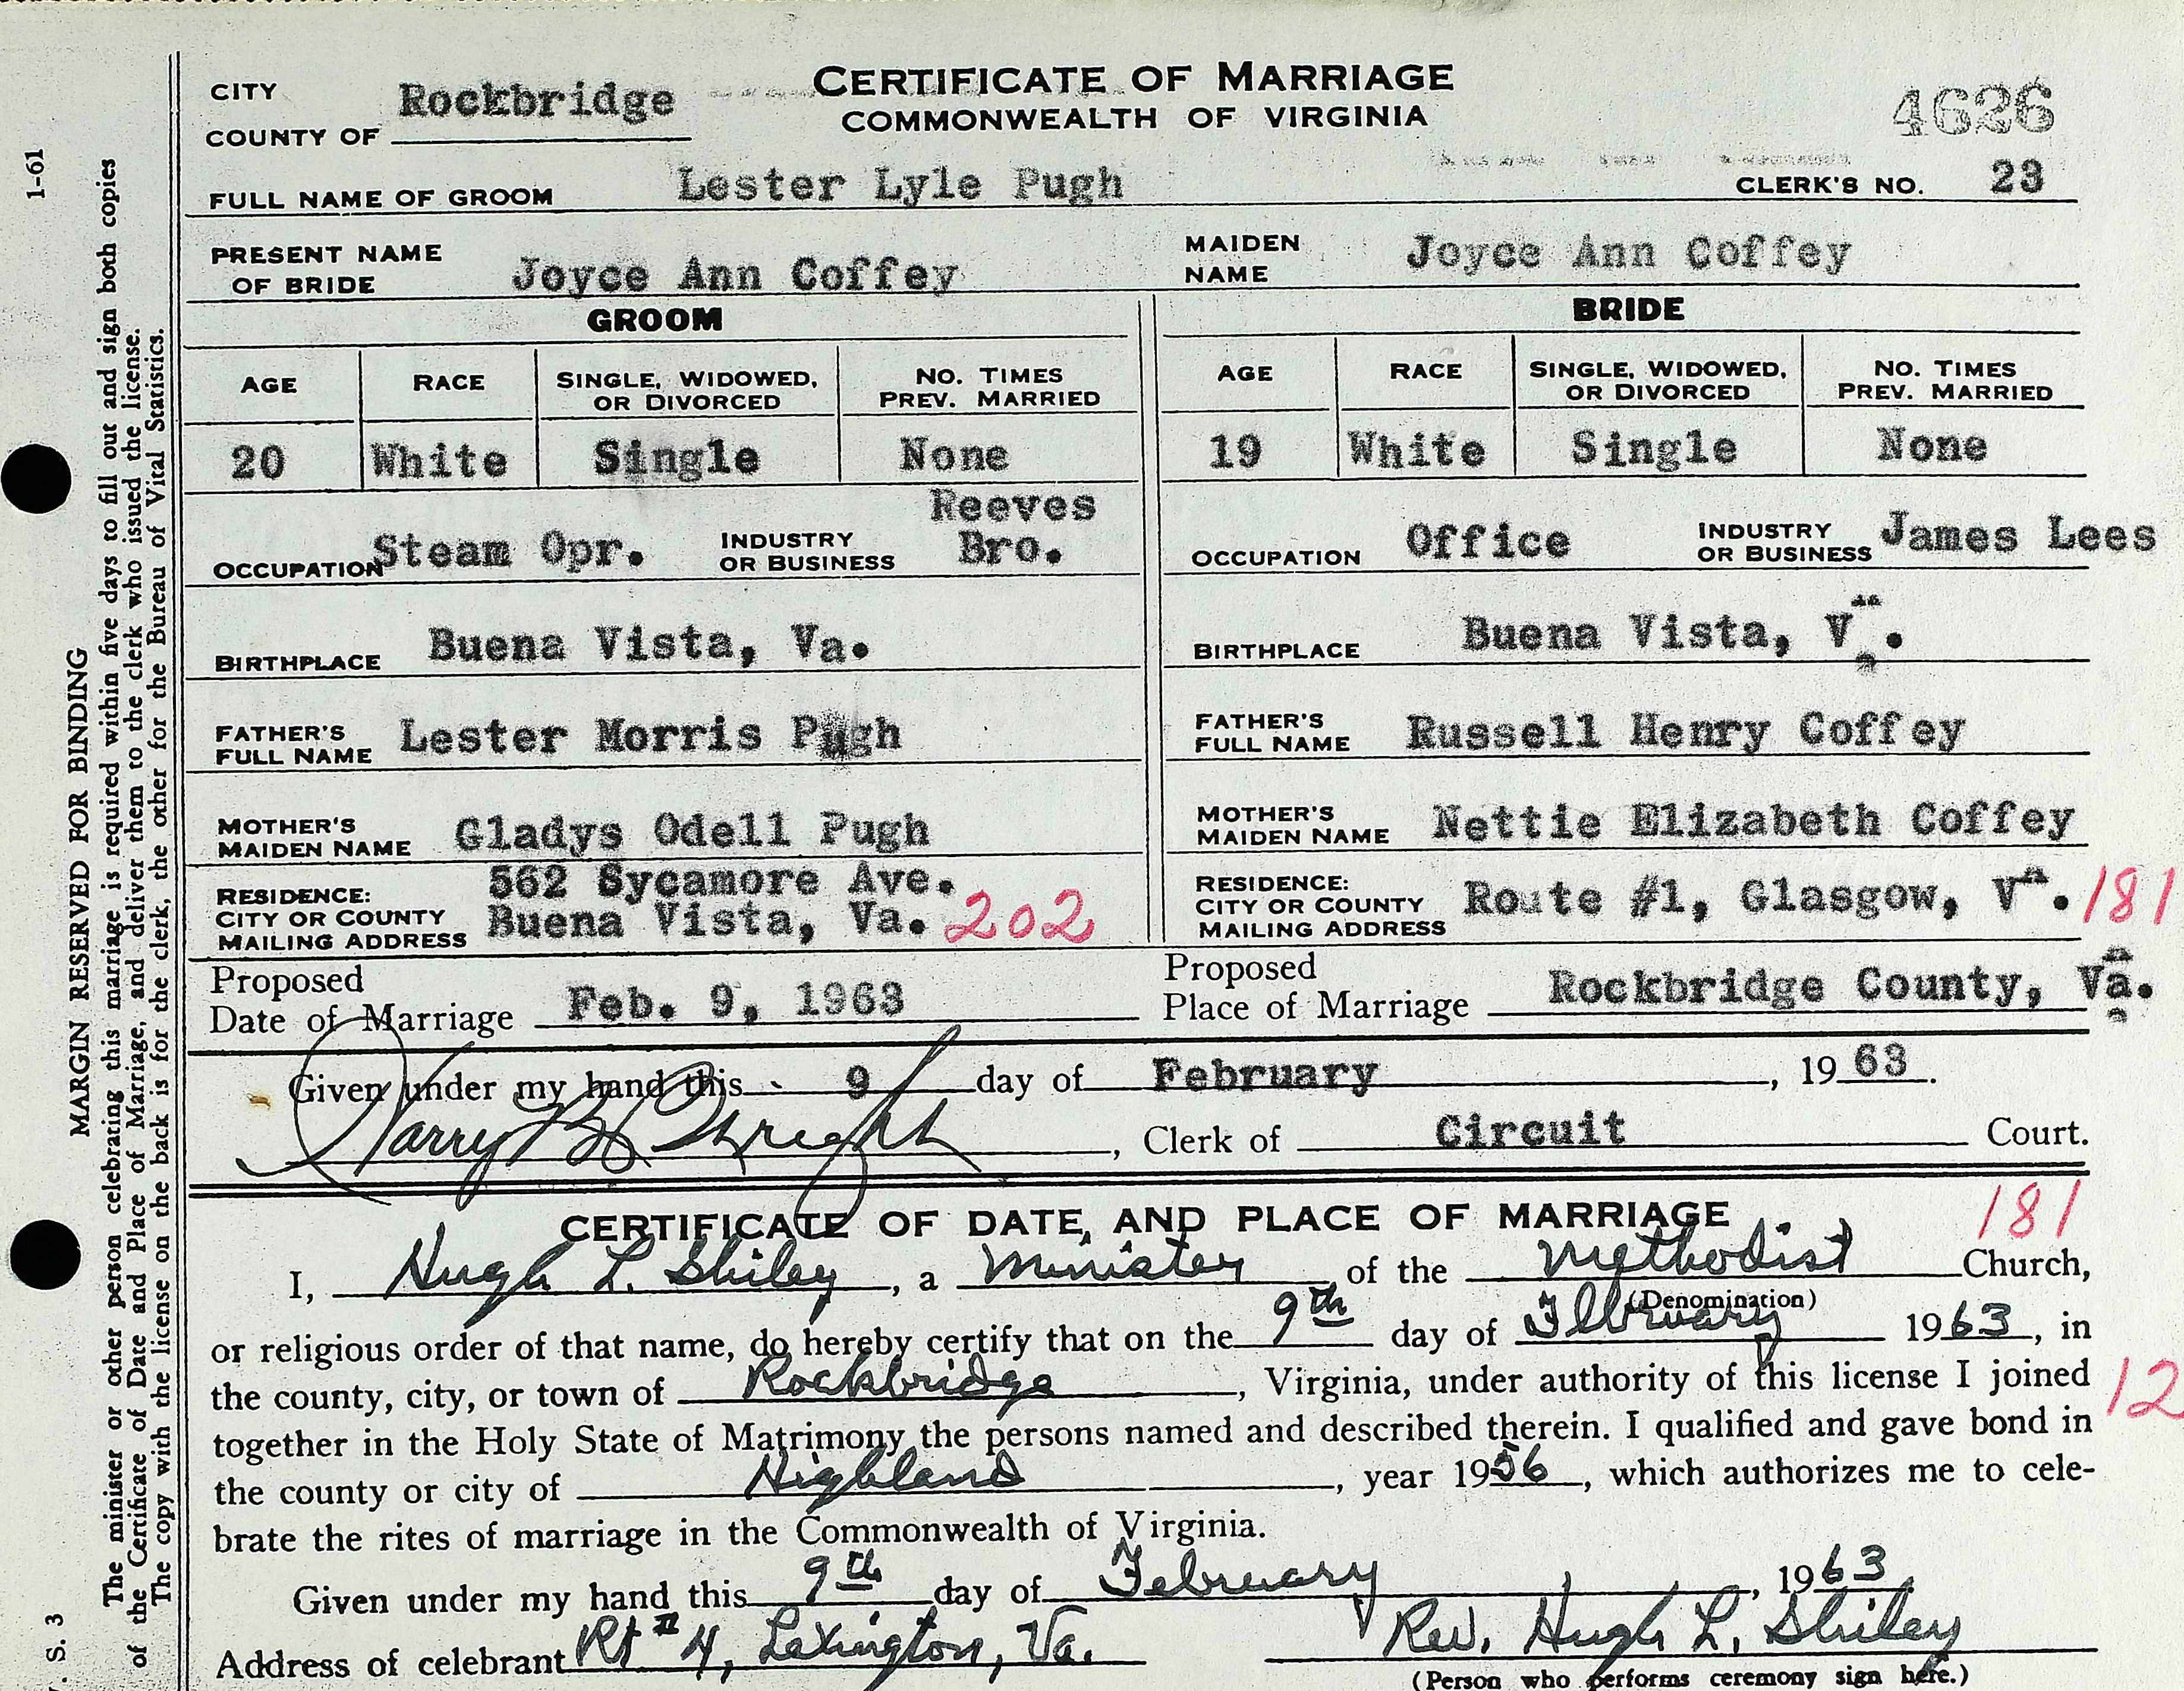 1-61
MARGIN RESERVED FOR BINDING
The minister or other person celebrating this marriage is required within five days to fill out and sign both copies
of the Certificate of Date and Place of Marriage, and deliver them to the clerk who issued the license.
The copy with the license on the back is for the clerk, the other for the Bureau of Vital Statistics.
. S. 3
CERTIFICATE OF MARRIAGE
COMMONWEALTH OF VIRGINIA
4626
CITY
COUNTY OF Rockbridge
FULL NAME OF GROOM Lester Lyle Pugh CLERK'S NO. 23
PRESENT NAME OF BRIDE Joyce Ann Coffey MAIDEN NAME Joyce Ann Coffey
GROOM
AGE RACE SINGLE, WIDOWED, OR DIVORCED NO. TIMES PREV. MARRIED
20 White Single None
OCCUPATION Steam Opr. INDUSTRY OR BUSINESS Reeves Bro.
BIRTHPLACE Buena Vista, Va.
FATHER'S FULL NAME Lester Morris Pugh
MOTHER'S MAIDEN NAME Gladys Odell Pugh
RESIDENCE: CITY OR COUNTY MAILING ADDRESS 562 Sycamore Ave. Buena Vista, Va. 202
BRIDE
AGE RACE SINGLE, WIDOWED, OR DIVORCED NO. TIMES PREV. MARRIED
19 White Single None
OCCUPATION Office INDUSTRY OR BUSINESS James Lees
BIRTHPLACE Buena Vista, Va.
FATHER'S FULL NAME Russell Henry Coffey
MOTHER'S MAIDEN NAME Nettie Elizabeth Coffey
RESIDENCE: CITY OR COUNTY MAILING ADDRESS Route #1, Glasgow, Va. 181
Proposed Date of Marriage Feb. 9, 1963 Proposed Place of Marriage Rockbridge County, Va.
Given under my hand this 9 day of February, 1963.
Harry B Wright, Clerk of Circuit Court.
CERTIFICATE OF DATE, AND PLACE OF MARRIAGE 181
I, Hugh L. Shiley, a Minister of the Methodist Church,
(Denomination)
or religious order of that name, do hereby certify that on the 9th day of February 1963, in
the county, city, or town of Rockbridge, Virginia, under authority of this license I joined 12
together in the Holy State of Matrimony the persons named and described therein. I qualified and gave bond in
the county or city of Highland, year 1956, which authorizes me to cele-
brate the rites of marriage in the Commonwealth of Virginia.
Given under my hand this 9th day of February, 1963
Address of celebrant Rt #4, Lexington, Va. Rev. Hugh L. Shiley
(Person who performs ceremony sign here.)